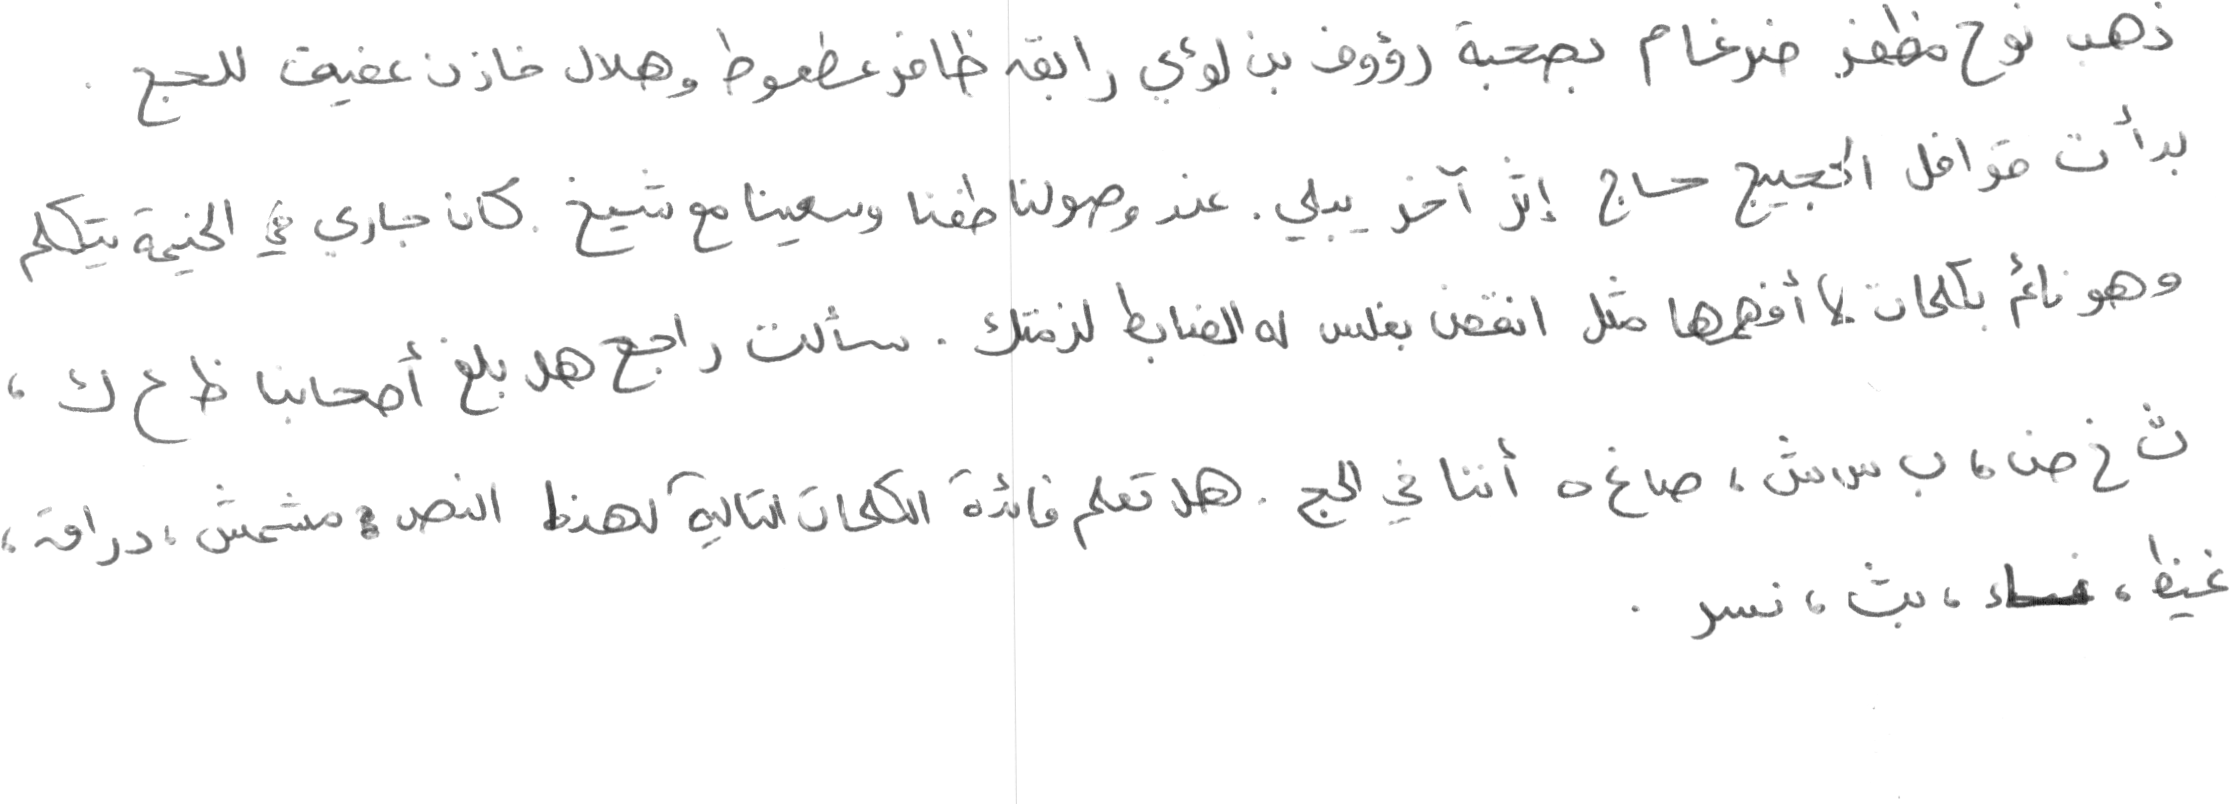 ذهب نوح مظفر ضرغام بصحبة رؤوف بن لؤي رابقه ظافر عطعوط وهلال خازن عفيف للحج .
بدأت قوافل الحجيج حاج إثر آخر يبلي . عند وصولنا طفنا وسعينا مع شيخ . كان جاري في الخيمة يتكلم
وهو نائم بكلمات لا أفهمها مثل انقض بغلس له الضابط لزمتك . سألت راجع هل بلغ أصحابنا ظ ع ك ،
ث خ ض ، ب س ش ، ص غ ه أننا في الحج . هل تعلم فائدة الكلمات التالية لهذا النص : مشمش ، دراقة ،
غيظ ، ، بث ، نسر .